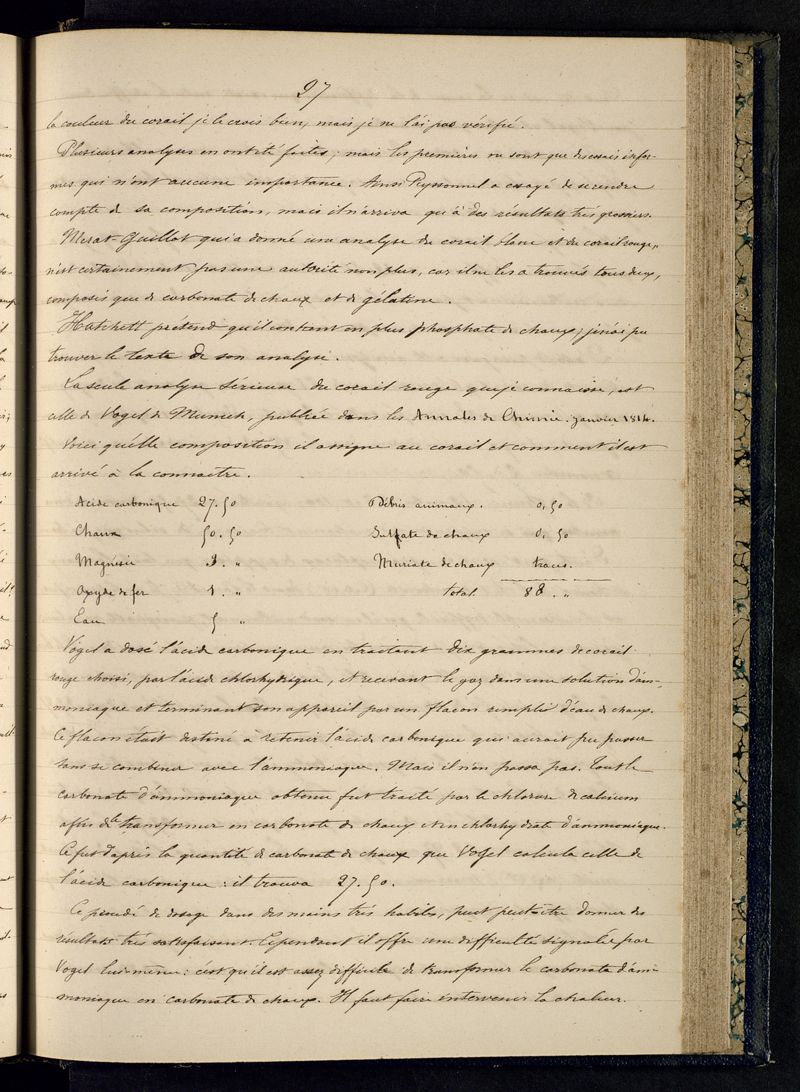 97
la couleur du corail je le crois bien, mais je ne l'ai pas vérifié.
Plusieurs analyses en ont été faites; mais les premières ne sont que des essais infor-
mes qui n'ont aucune importance. Ainsi Peyssonnel a essayé de se rendre
compte de sa composition, mais il n'arriva qu'à des résultats très grossiers.
Mérat-Guillot qui a donné une analyse du corail blanc et du corail rouge,
n'est certainement pas une autorité non plus, car il ne les a trouvés tous deux,
composés que de carbonate de chaux et de gélatine.
Hatchett prétend qu'il contient en plus phosphate de chaux; je n'ai pu
trouver le texte de son analyse.
La seule analyse sérieuse du corail rouge que je connaisse, est
celle de Vogel de Munich, publiée dans les Annales de Chimie, janvier 1814.
Voici quelle composition il assigne au corail et comment il est
arrivé à la connaître.
Acide carbonique 27.50 Débris animaux. 0.50
Chaux 50.50 Sulfate de chaux 0.50
Magnésie 3. " Muriate de chaux traces.
Oxyde de fer 1. " total. 88. "
Eau 5 "
Vogel a dosé l'acide carbonique en traitant dix grammes de corail
rouge choisi, par l'acide chlorhydrique, et recevant le gaz dans une solution d'am-
moniaque et terminant son appareil par un flacon rempli d'eau de chaux.
Ce flacon était destiné à retenir l'acide carbonique qui aurait pu passer
sans se combiner avec l'ammoniaque. Mais il n'en passa pas. Tout le
carbonate d'ammoniaque obtenu fut traité par le chlorure de calcium
afin de le transformer en carbonate de chaux et en chlorhydrate d'ammoniaque.
Ce fut d'après la quantité de carbonate de chaux que Vogel calcula celle de
l'acide carbonique: il trouva 27.50.
Ce procédé de dosage dans des mains très habiles, peut peut-être donner des
résultats très satisfaisant. Cependant il offre une difficulté signalée par
Vogel lui-même: c'est qu'il est assez difficile de transformer le carbonate d'am-
moniaque en carbonate de chaux. Il faut faire intervenir la chaleur.